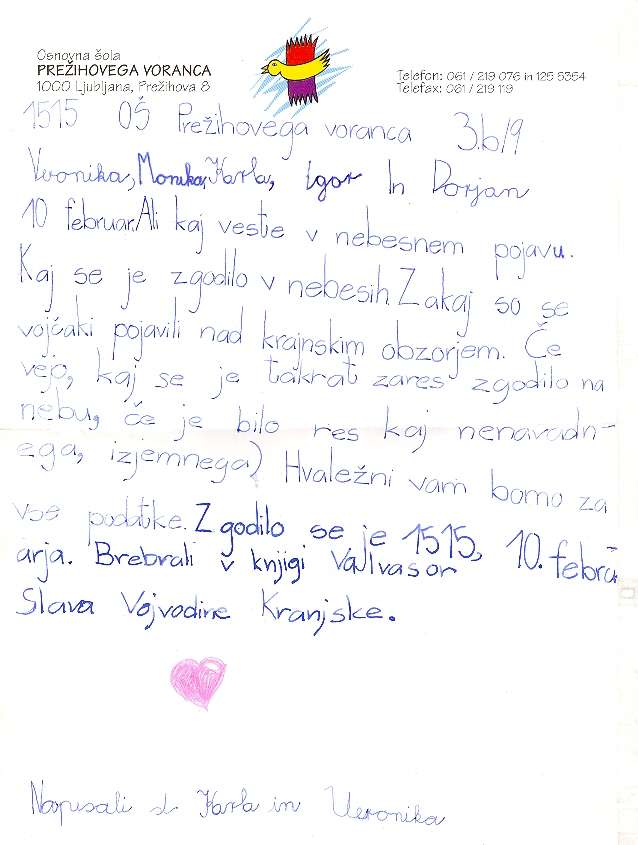 Osnovna šola
PREŽIHOVEGA VORANCA
1000 Ljubljana, Prežihova 8
Telefon: 061 / 219 076 in 125 5354
Telefax: 061 / 219 119
1515 OŠ Prežihovega voranca 3.b/9
Veronika, Monika, Karla, Igor In Dorjan
10 februar. Ali kaj veste v nebesnem pojavu.
Kaj se je zgodilo v nebesih. Zakaj so se
vojčaki pojavili nad krajnskim obzorjem. Če
vejo, kaj se je takrat zares zgodilo na
nebu, če je bilo res kaj nenavadn-
ega, izjemnega) Hvaležni vam bomo za
vse podatike. Zgodilo se je 1515, 10. februarja.
arja. Brebrali v knjigi Valvasor
Slava Vojvodine Kranjske.
Napisali sta Karla in Veronika